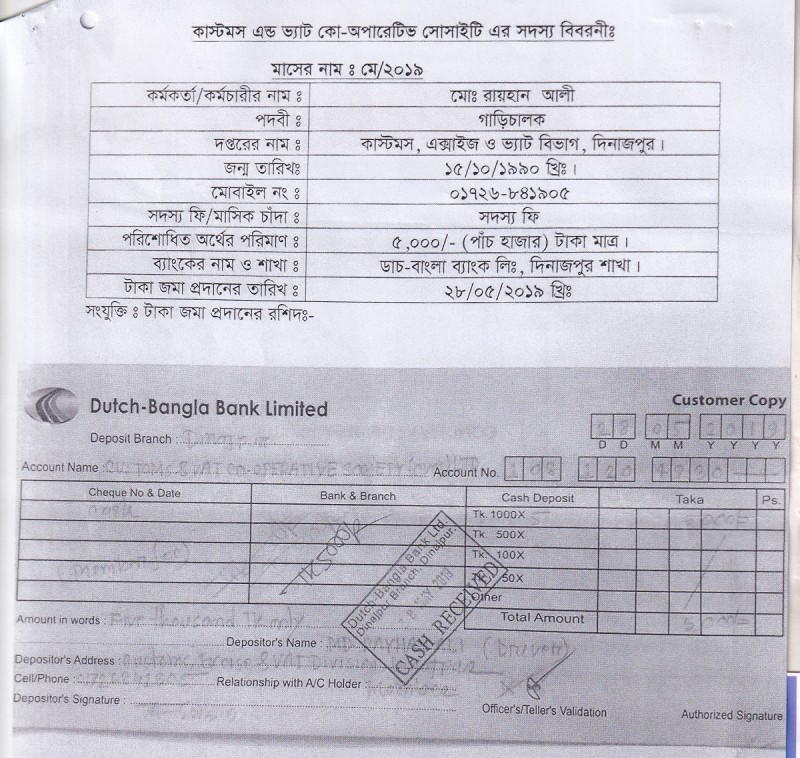 কাস্টমস এন্ড ভ্যাট কো-অপারেটিভ সোসাইটি এর সদস্য বিবরনীঃ
মাসের নাম ঃ মে/২০১৯
কর্মকর্তা/কর্মচারীর নাম ঃ মোঃ রায়হান আলী
পদবী ঃ গাড়িচালক
দপ্তরের নাম ঃ কাস্টমস, এক্সাইজ ও ভ্যাট বিভাগ, দিনাজপুর।
জন্ম তারিখঃ ১৫/১০/১৯৯০ খ্রিঃ।
মোবাইল নং ঃ ০১৭২৬-৮৪১৯০৫
সদস্য ফি/মাসিক চাঁদা ঃ সদস্য ফি
পরিশোধিত অর্থের পরিমাণ ঃ ৫,০০০/- (পাঁচ হাজার) টাকা মাত্র।
ব্যাংকের নাম ও শাখা ঃ ডাচ-বাংলা ব্যাংক লিঃ, দিনাজপুর শাখা।
টাকা জমা প্রদানের তারিখ ঃ ২৮/০৫/২০১৯ খ্রিঃ
সংযুক্তি ঃ টাকা জমা প্রদানের রশিদঃ-
Dutch-Bangla Bank Limited Customer Copy
28 05 2019
Deposit Branch : D D M M Y Y Y Y
Account Name : Account No. 108 120
Cheque No & Date Bank & Branch Cash Deposit Taka Ps.
Tk. 1000X 5
Tk. 500X
Tk. 100X
50X
Other
TK 5000/-
Dutch-Bangla Bank Ltd.
Dinajpur Branch, Dinajpur
CASH RECEIVED
Total Amount
Amount in words : Five thousand Tk only
Depositor's Name : MD RAYHAN ALI
Depositor's Address : Customs, Excise & VAT Division
Cell/Phone : Relationship with A/C Holder :
Depositor's Signature : Officer's/Teller's Validation Authorized Signature